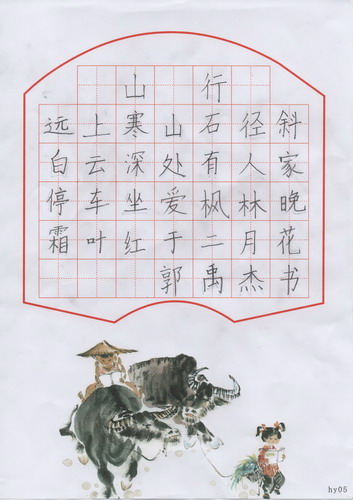 山行
远上寒山石径斜
白云深处有人家
停车坐爱枫林晚
霜叶红于二月花
郭禹杰书
hy05